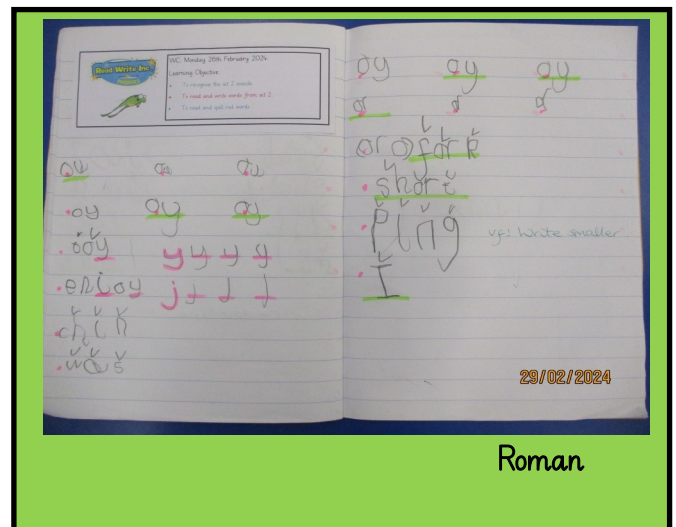 Read Write Inc.
Phonics
WC: Monday 26th February 2024
Learning Objective:
To recognise the set 2 sounds
To read and write words from set 2
To read and spell red words
ou
oy ay ay
y y y y
enjoy j
chin
was
oy ay ay
or
or fork
short
Ping
I
vf: Write smaller
29/02/2024
Roman